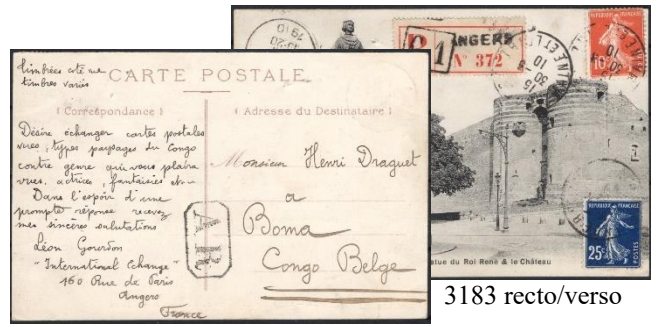 timbrées côté vue
timbres variés
CARTE POSTALE
(Correspondance)
(Adresse du Destinataire)
Désire échanger cartes postales
vues, types paysages du Congo
contre genre qui vous plaira
vues, actrices, fantaisies etc
Dans l'espoir d'une
prompte réponse recevez
mes sincères salutations
Léon Gourdon
"International Echange"
160 Rue de Paris
Angers
France
Monsieur Henri Draguet
a
Boma
Congo Belge
R
ANGERS
N° 372
1910
REPUBLIQUE FRANÇAISE
10
POSTES
15
30-8
10
REPUBLIQUE FRANÇAISE
25c
POSTES
Statue du Roi René & le Château
3183 recto/verso